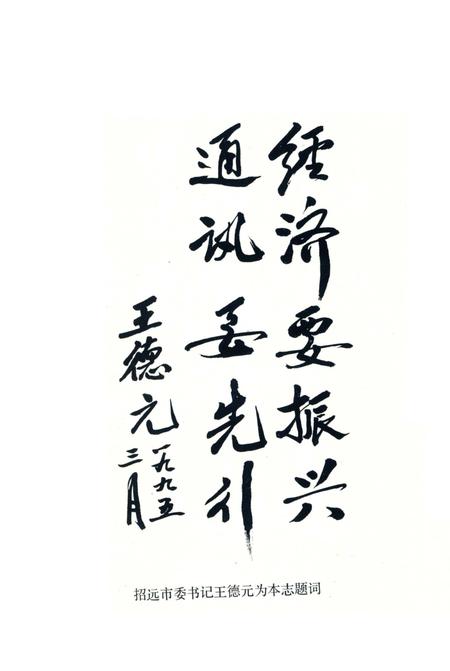 经济要振兴
通讯要先行
王德元
一九九五
三月
招远市委书记王德元为本志题词